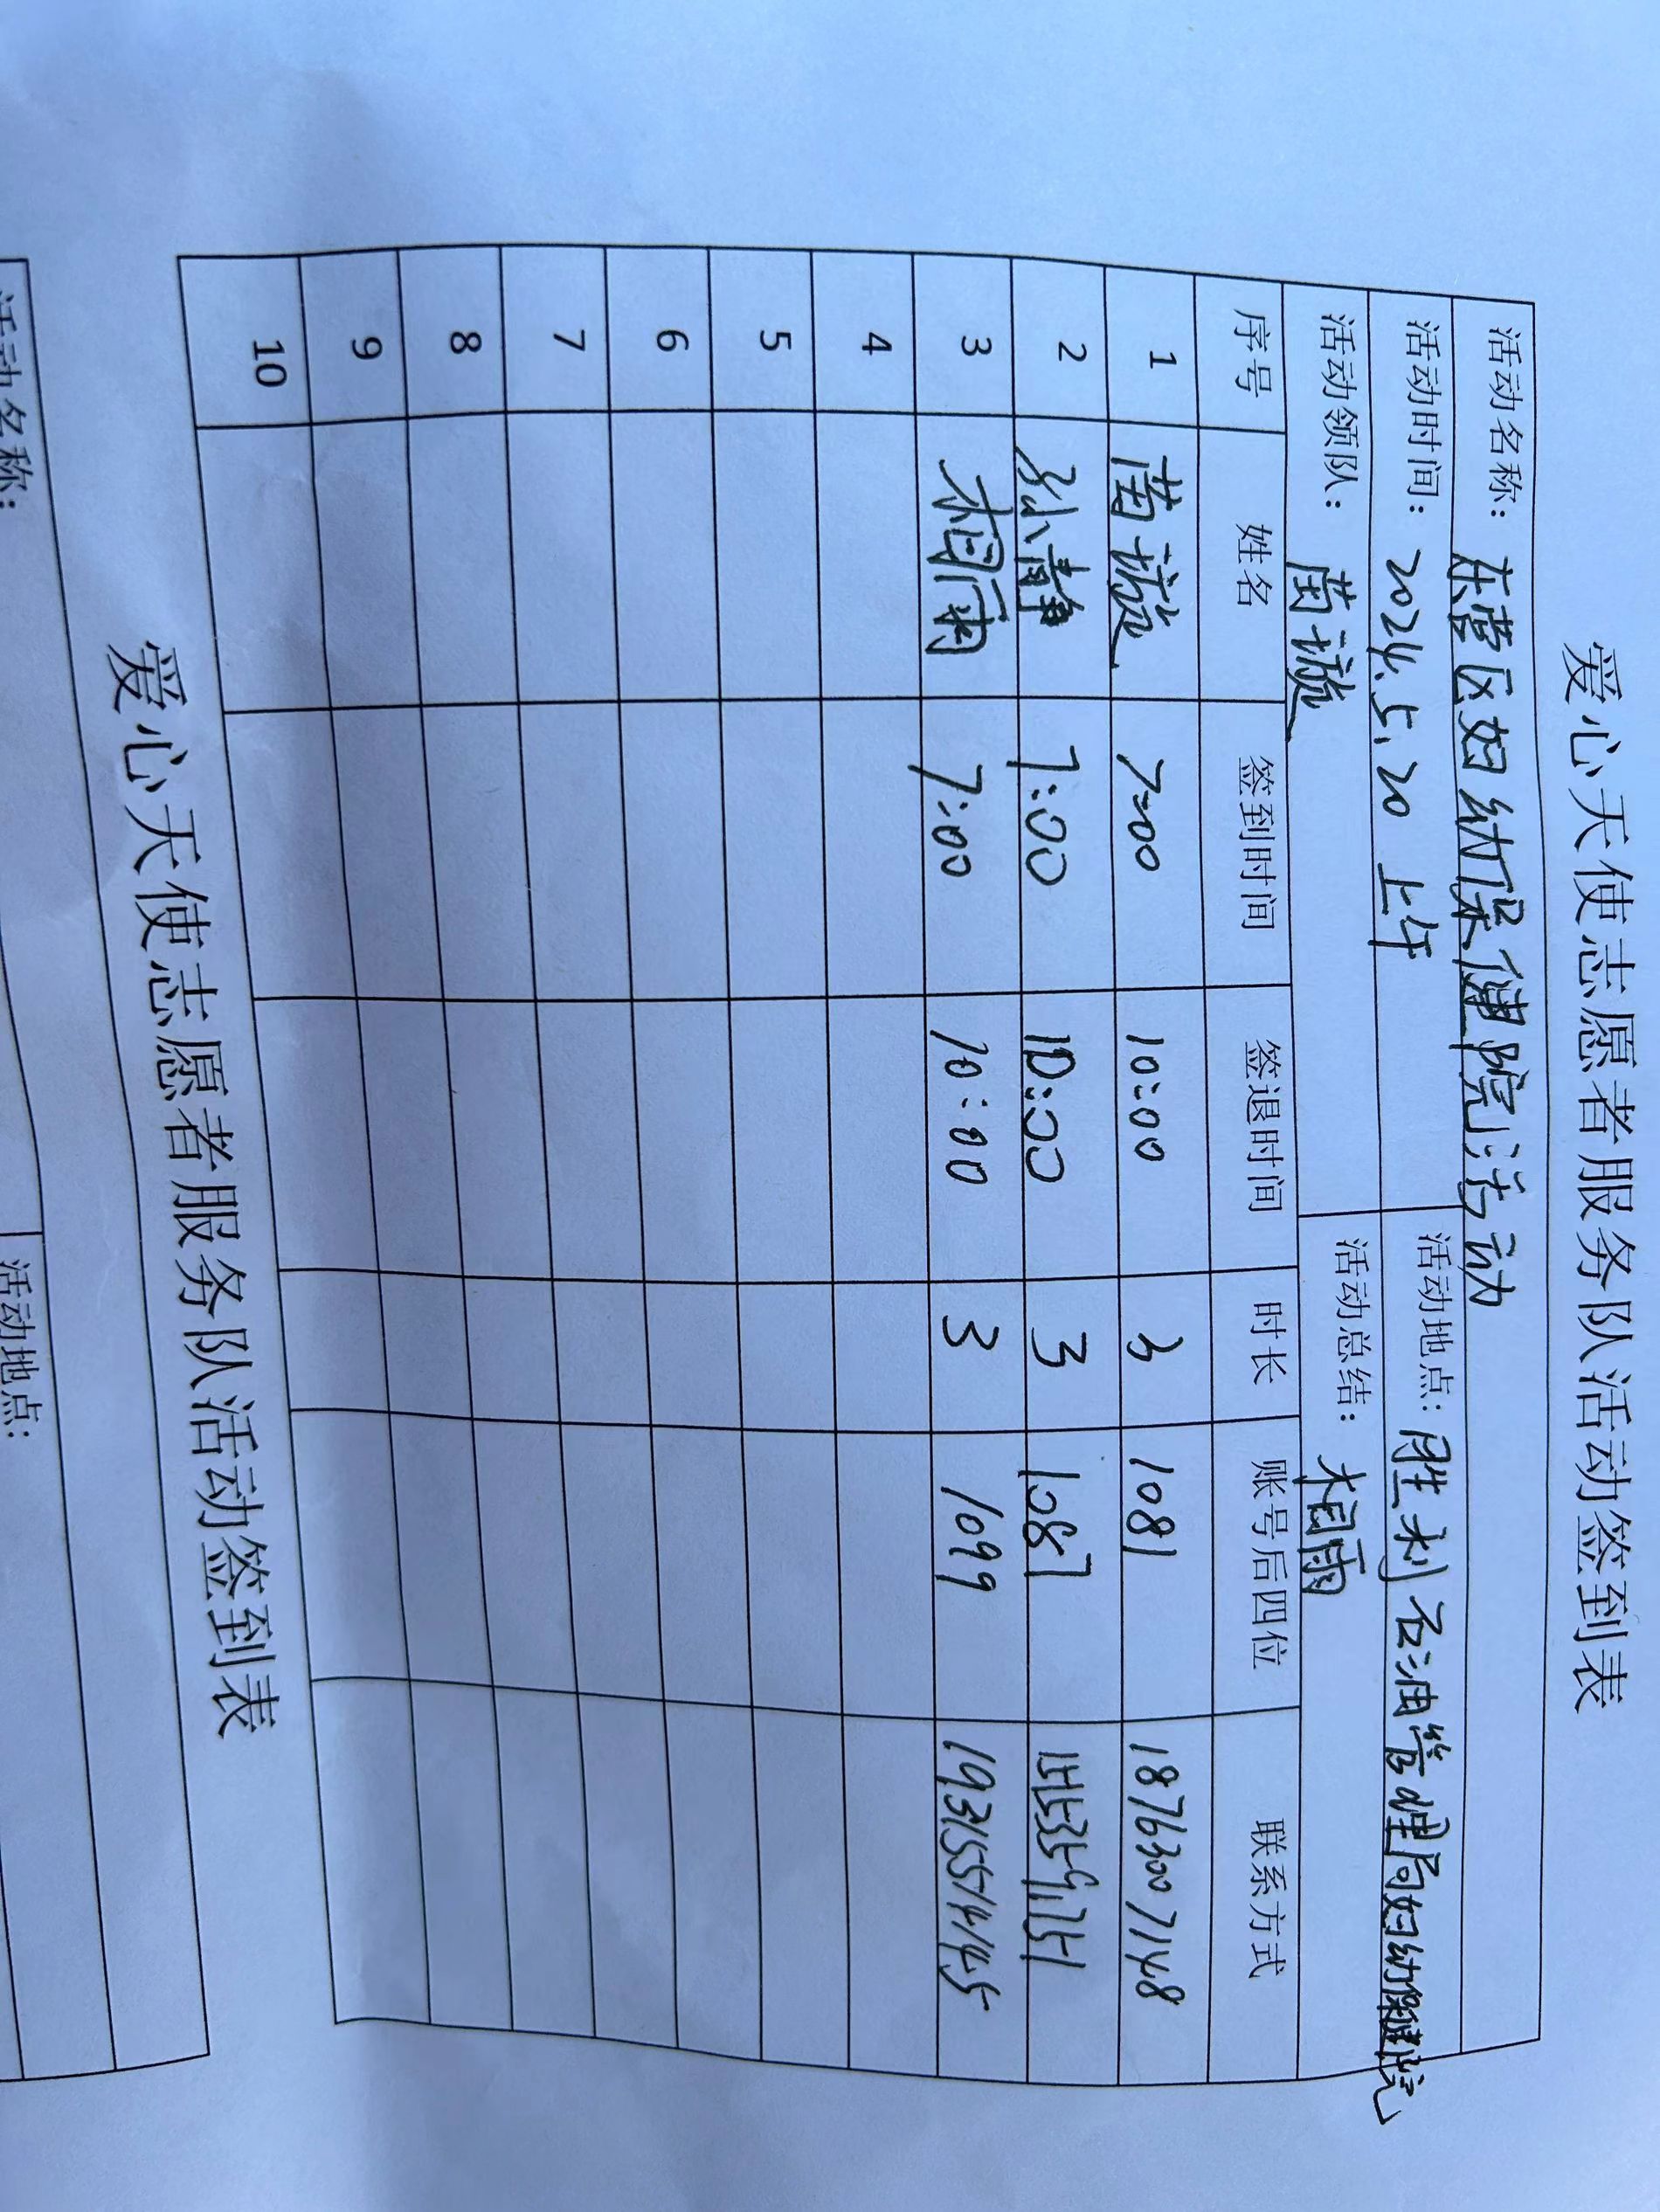 爱心天使志愿者服务队活动签到表
活动名称: 东营区妇幼保健院活动
活动时间: 2024.5.20 上午 活动地点: 胜利石油管理局妇幼保健院
活动领队: 苗璇 活动总结: 相雨
序号 姓名 签到时间 签退时间 时长 账号后四位 联系方式
1 苗璇 7:00 10:00 3 1081 18763007148
2 孙静 7:00 10:00 3 1087
3 相雨 7:00 10:00 3 1099 19315514145
4
5
6
7
8
9
10
爱心天使志愿者服务队活动签到表
活动名称:
活动地点: